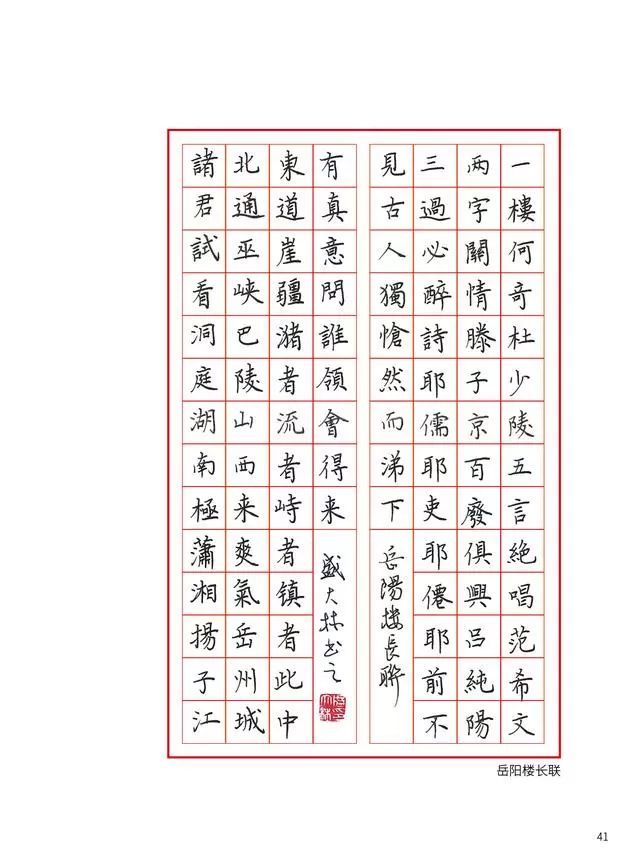 一樓何奇杜少陵五言絕唱范希文
两字關情滕子京百廢俱興呂純陽
三過必醉詩耶儒耶吏耶僊耶前不
見古人獨愴然而涕下
岳陽楼長聯
諸君試看洞庭湖南極蕭湘揚子江
北通巫峡巴陵山西来爽氣岳州城
東道崖疆潴者流者峙者镇者此中
有真意問誰領會得来
盛大林书之
岳阳楼长联
41